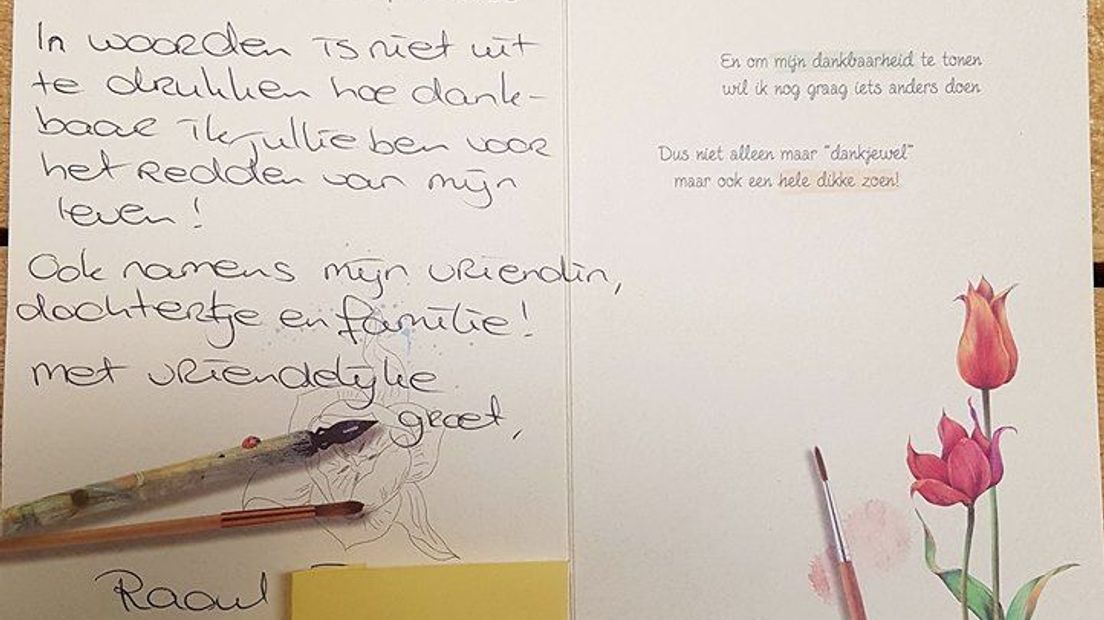 In woorden is niet uit
te drukken hoe dank-
baar ik jullie ben voor
het redden van mijn
leven!
Ook namens mijn vriendin,
dochtertje en familie!
met vriendelijke
groet,
Raoul
En om mijn dankbaarheid te tonen
wil ik nog graag iets anders doen
Dus niet alleen maar "dankjewel"
maar ook een hele dikke zoen!